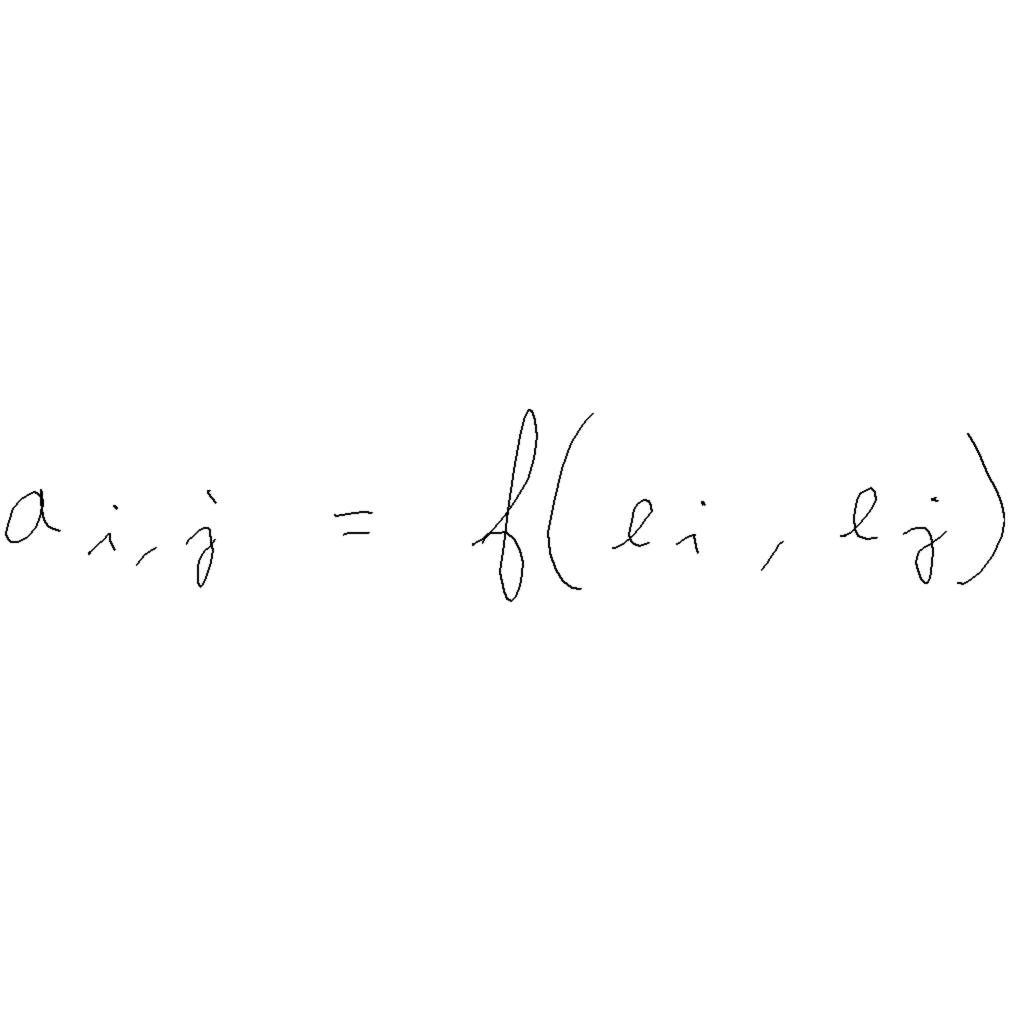 a_{i,j} = f(e_i, e_j)